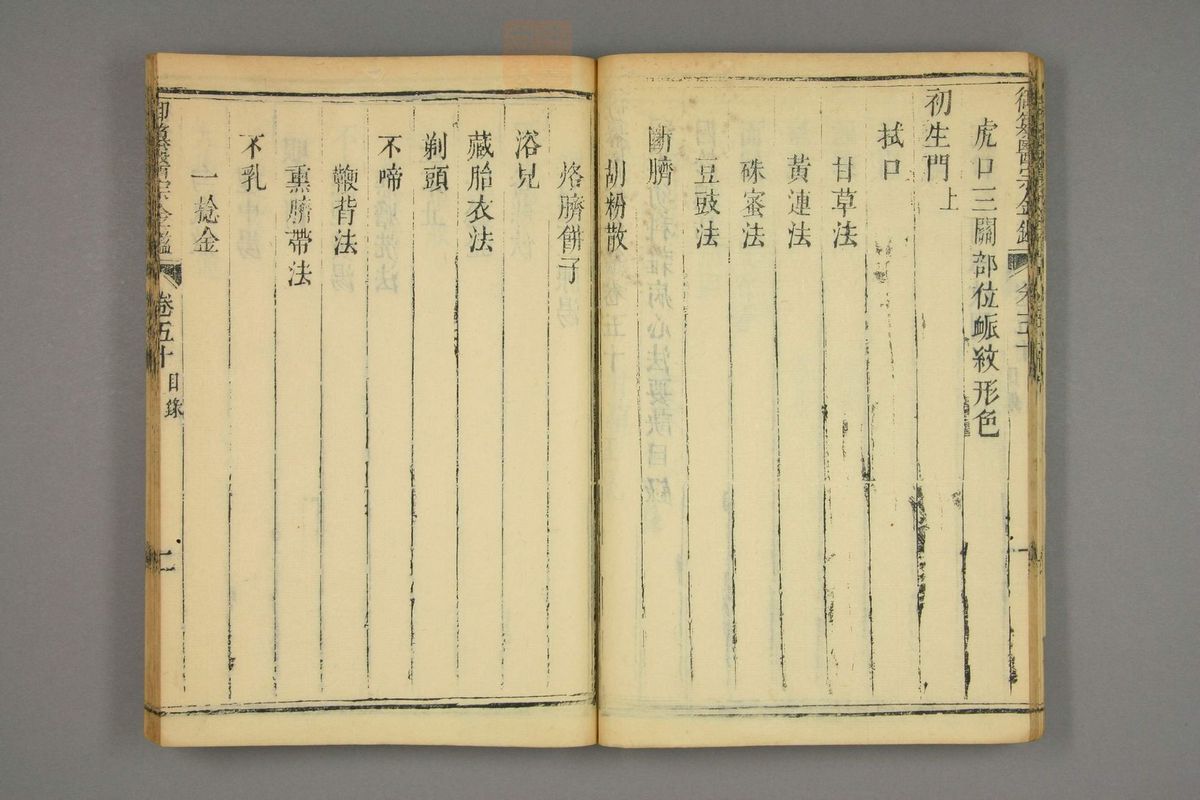 御纂醫宗金鑑
卷五十
一
虎口三關部位脈紋形色
初生門上
拭口
甘草法
黃連法
硃蜜法
豆豉法
斷臍
胡粉散
烙臍餅子
浴兒
藏胎衣法
剃頭
不啼
鞭背法
熏臍帶法
不乳
一捻金
御纂醫宗金鑑
卷五十
目錄
二